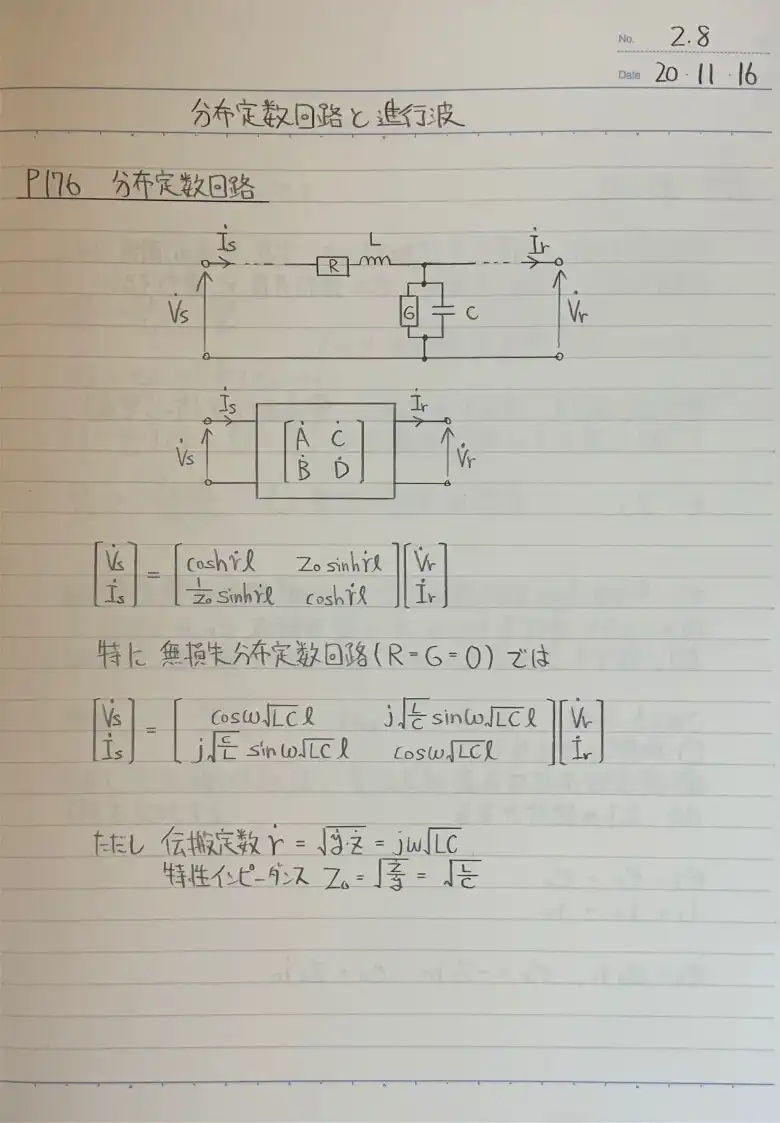 No. 2.8
Date 20・11・16
分布定数回路と進行波
P176 分布定数回路
İs R L İr
V̇s G C V̇r
İs İr
V̇s [Ȧ Ċ] V̇r
[Ḃ Ḋ]
[V̇s] = [coshṙℓ Z₀ sinhṙℓ] [V̇r]
[İs] [1/Z₀ sinhṙℓ coshṙℓ] [İr]
特に 無損失分布定数回路(R=G=0)では
[V̇s] = [cosω√LC ℓ j√(L/C) sinω√LC ℓ] [V̇r]
[İs] [j√(C/L) sinω√LC ℓ cosω√LC ℓ] [İr]
ただし 伝搬定数 ṙ = √(ẏ・ż) = jω√LC
特性インピーダンス Z₀ = √(ż/ẏ) = √(L/C)